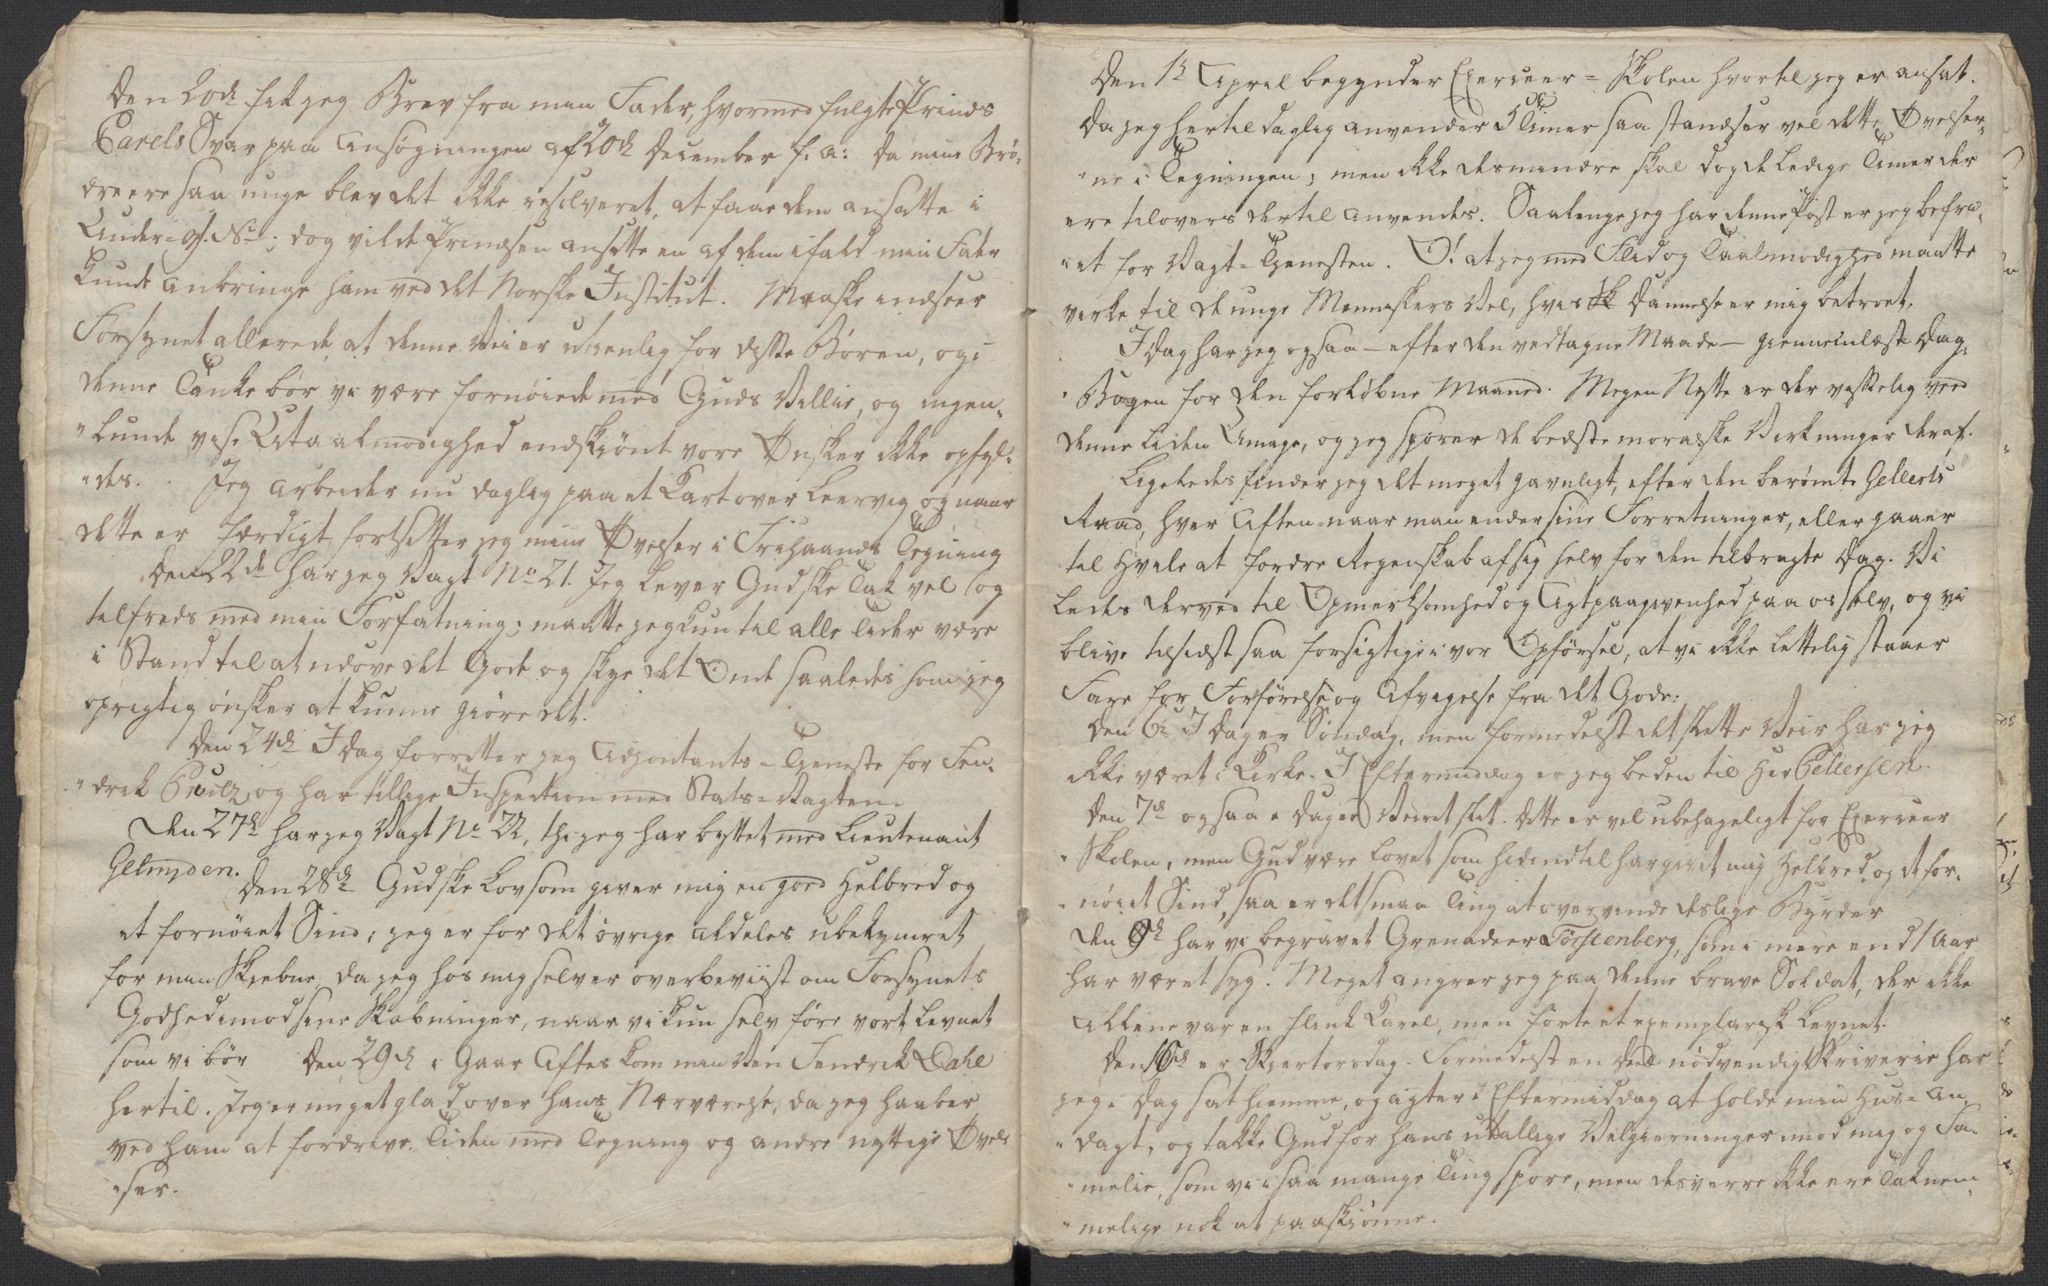 Den 20de fik jeg Brev fra min Fader, hvormed fulgte Prinds
Carels Svar paa Ansøgningen af 20de December f. a: Da mine Brø-
dre ere saa unge blev det ikke resolveret, at faae dem ansatte i
dog vilde Prindsen ansætte en af dem ifald min Fader
kunde anbringe ham ved det Norske Institut. Maaske indseer
Forsynet allerede, at denne Vei er utjenlig for disse Børn, og i
denne Tanke bør vi være fornøiede med Guds Villie, og ingen-
"lunde vise Utaalmodighed endskjønt vore Ønsker ikke opfyl-
"des. Jeg arbeider nu daglig paa et Kart over Leervig og naar
dette er færdigt, fortsætter jeg mine Øvelser i Frihaands Tegning
Den 22de har jeg Vagt No 21. Jeg lever Gud ske Tak vel og
tilfreds med min Forfatning; maatte jeg kun til alle Tider være
i Stand til at udøve det Gode og skye det Onde saaledes som jeg
oprigtig ønsker at kunne giøre det.
Den 24de I Dag forretter jeg Adjoutants-Tjeneste for Fen-
"drik og har tillige Inspection med Stats-Vagten.
Den 27de har jeg Vagt No 22, thi jeg har byttet med Lieutenant
Gelmyden. Den 28de Gud skee Lov som giver mig en god Helbred og
et fornøiet Sind; jeg er for det øvrige aldeles ubekymret
for min Skjebne, da jeg hos mig selv er overbeviist om Forsynets
Godhed imod sine Skabninger, naar vi kun selv føre vort Levnet
som vi bør Den 29de i Gaar Aftes kom min Ven Fendrik Dahl
hertil. Jeg er meget glad over hans Nærværelse, da jeg haaber
ved ham at fordrive Tiden med Tegning og andre nyttige Øvel-
"ser.
Den 1ste April begynder Exerceer-Skolen hvortil jeg er ansat.
Da jeg hertil daglig anvender 5 Timer saa standser vel dette Øvelser-
"ne i Tegningen; men ikke desmindre skal dog de ledige Timer der
ere tilovers dertil anvendes. Saalenge jeg har denne Post er jeg befri-
"et for Vagt-Tjenesten. O! at jeg med Flid og Taalmodighed maatte
virke til de unge Menneskers Vel, hvis Dannelse er mig betroet.
I Dag har jeg ogsaa – efter den vedtagne Maade – giennemlæst Dag-
"Bogen for den forløbne Maaned. Megen Nytte er der visselig ved
denne liden Umage, og jeg sporer de bedste moralske Virkninger deraf.
Ligeledes finder jeg det meget gavnligt, efter den berømte Gellerts
Raad, hver Aften naar man ender sine Forretninger, eller gaaer
til Hvile at fordre Regenskab af sig selv for den tilbragte Dag. Vi
ledes derved til Opmerksomhed og Agtpaagivenhed paa os selv, og vi
blive tilsidst saa forsigtige i vor Opførsel, at vi ikke lettelig staaer
Fare for Forførelse og Afvigelse fra det Gode.
Den 6te I Dag er Søndag, men formedelst det slette Veir har jeg
ikke været i Kirke. I Eftermiddag er jeg beden til Hr Pettersen.
Den 7de ogsaa i Dag er Veiret slet. Dette er vel ubehageligt for Exerceer
"Skolen, men Gud være lovet som hidindtil har givet mig Helbred og et for-
"nøiet Sind, saa er det smaa Ting at overvinde deslige Byrder
Den 9de har vi begravet Grenadeer Förstenberg, som i mere end 1 Aar
har været syg. Meget angrer jeg paa denne brave Soldat, der ikke
allene var en flink Karel, men førte et exemplarisk Levnet.
Den 10de er Skjertorsdag. Formedelst en Deel nødvendigt Skriverie har
jeg i Dag sat hiemme, og agter i Eftermiddag at holde min Hus-An-
"dagt, og takke Gud for hans utallige Velgierninger imod mig og Fa-
"milie, som vi i saa mange Ting spore, men desverre ikke ere Taknem-
"melige nok at paaskiønne.